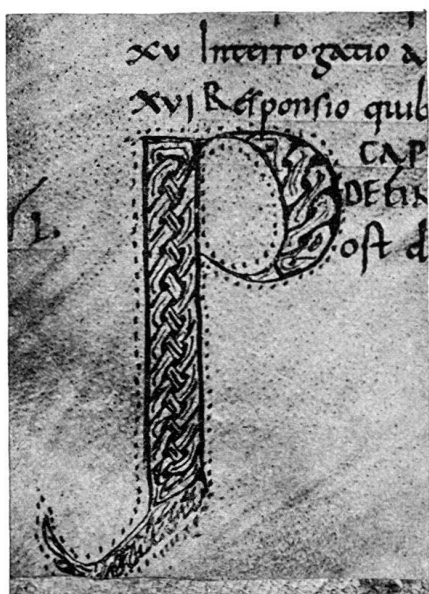 XV Interrogatio a
XVI Responsio quib
CAP
P
ost d